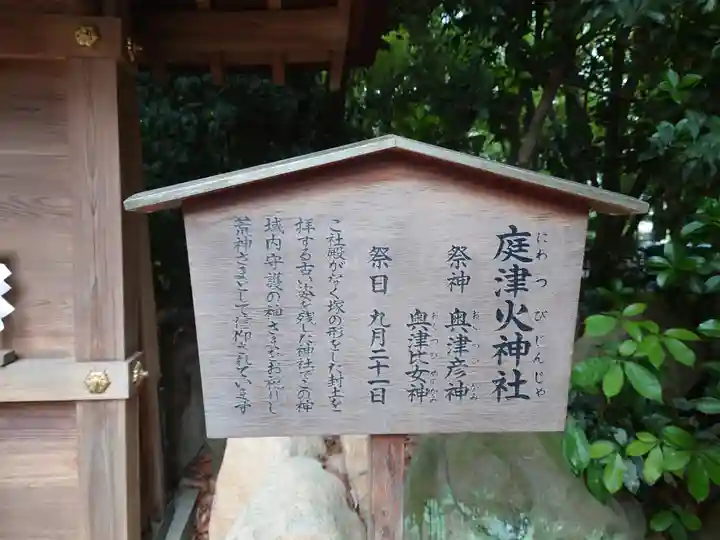 庭津火神社
にわつびじんじゃ
祭神 奥津彦神
おきつひこのかみ
奥津比女神
おきつひめのかみ
祭日 九月二十一日
ご社殿がなく塚の形をした封土を
拝する古い姿を残した神社でこの神
域内守護の神さまをお祀りし
荒神さまとして信仰されています